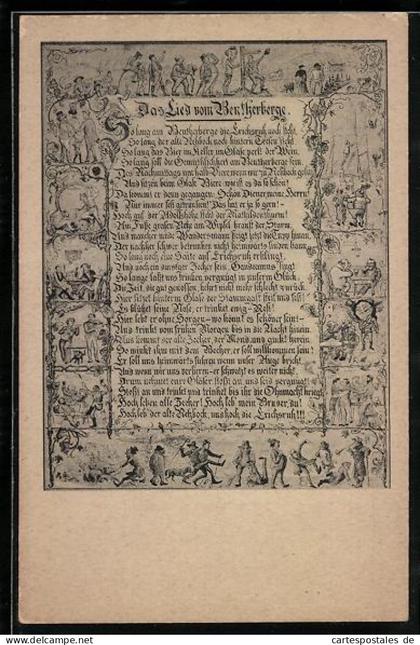 Das Lied vom Bentherberge.
So lang am Bentherberge die Erichsruh noch steht,
So lang der alte Rehbock noch hintern Tresen steht,
So lang das Bier im Keller im Glase perlt der Wein,
So lang soll die Gemütlichkeit am Bentherberge sein.
Des Nachmittags
Und sitzen beim Glase Biere
Da kommt er denn gegangen: Schön Diener meine Herrn!
Nur immer
Hoch auf der Wolfshöhe steht der Mathildenthurm
Am Fuße grasen Rehe am Wipfel braust der Sturm.
Und mancher müde Wandersmann
Der nachher schwer betrunken nicht heimwärts finden kann.
So lang noch eine Saite auf Erichsruh erklingt,
Und noch ein durstger Zecher sein Gaudeamus singt
So lange laßt uns trinken vergnügt in unserm Glück,
Die Zeit, die gut genossen, kehrt nicht mehr zurück.
Hier sitzet hinterm Glase der Stammgast still und
Es blühet seine Nase, er trinket
Hier lebt er ohne Sorgen – wo könnt es schöner sein! –
Und trinkt vom frühen Morgen bis in die Nacht hinein.
Und kommt der alte Zecher, der Mond, und guckt herein
So winkt ihm mit dem Becher, er soll willkommen sein!
Er soll uns heimwärts führen wenn unser Auge bricht,
Und wenn wir uns verlieren – er schwatzt es weiter nicht.
Drum nehmet eure Gläser
Stoßt an und trinkt und trinket bis ihr die Ohnmacht kriegt.
Hoch leben alle Zecher! Hoch leb mein Bruder, du!
Hoch leb der alte Rehbock, und hoch die Erichsruh!!!
www.delcampe.net
cartespostales de